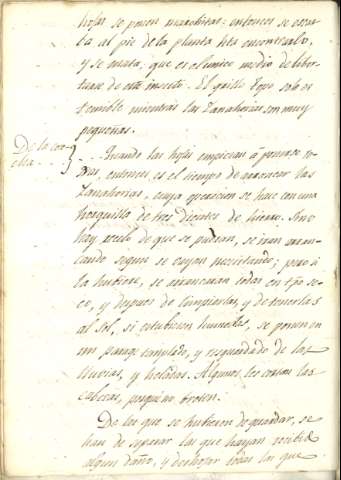 hojas se ponen marchitas: entonces se escar-
ba al pie de la planta hta encontrarlo,
y se mata; que es el unico medio de liber-
tarse de este insecto. El grillo Topo solo es
temible mientras las Zanahorias son muy
pequeñas.
De la co-
secha.
Quando las hojas empiezan á ponerse ro-
xas, entonces es el tiempo de arrancar las
Zanahorias, cuya operacion se hace con una
horquilla de tres dientes de hierro. Si no
hay rezelo de que se pudran, se irán arran-
cando segun se vayan necesitando; pero si
lo hubiere, se arrancarán todas en tpo se-
co, y despues de limpiarlas, y de tenerlas
al sol, si estubiesen humedas, se ponen en
un parage templado, y resguardado de las
lluvias, y heladas. Algunos les cortan las
cabezas, porque no broten.
De las que se hubieren de guardar, se
han de separar las que hayan recibido
algun daño, y deshojar todas las que